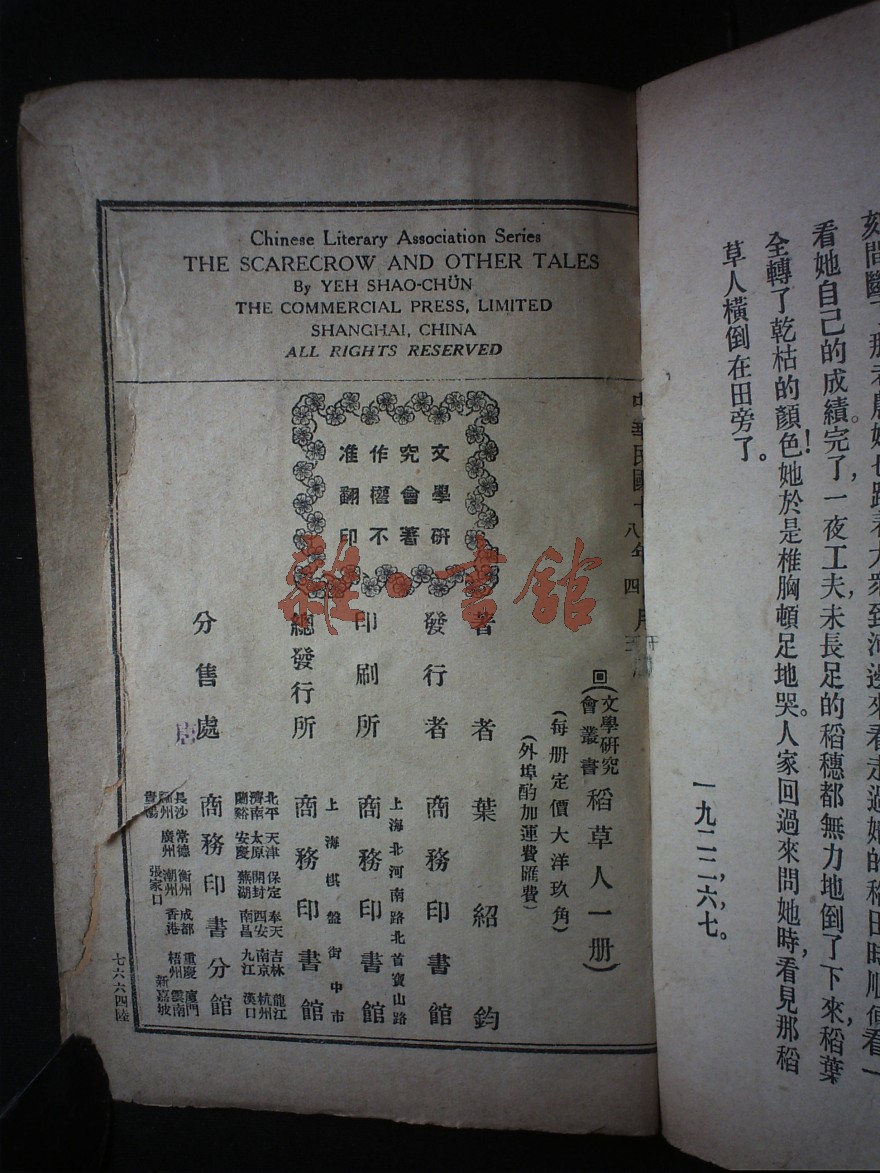 看她自己的成績完了,一夜工夫,未長足的稻穗都無力地倒了下來,稻葉
全轉了乾枯的顏色!她於是椎胸頓足地哭。人家回過來問她時,看見那稻
草人橫倒在田旁了。
一九二二,六,七。
Chinese Literary Association Series
THE SCARECROW AND OTHER TALES
By YEH SHAO-CHÜN
THE COMMERCIAL PRESS, LIMITED
SHANGHAI, CHINA
ALL RIGHTS RESERVED
文學研
究會著
作權不
准翻印
中華民國十八年四月
回(文學研究會叢書 稻草人一册)
(每册定價大洋玖角)
(外埠酌加運費匯費)
著者 葉紹鈞
發行者 商務印書館
上海北河南路北首寶山路
印刷所 商務印書館
上海棋盤街中市
總發行所 商務印書館
北平 天津 保定 奉天 吉林 龍江
濟南 太原 開封 西安 南京 杭州
蘭谿 安慶 蕪湖 南昌 九江 漢口
分售處 商務印書分館
長沙 常德 衡州 成都 重慶 廈門
福州 廣州 潮州 香港 梧州 雲南
貴陽 張家口 新嘉坡
七六六四陸
雜·書館